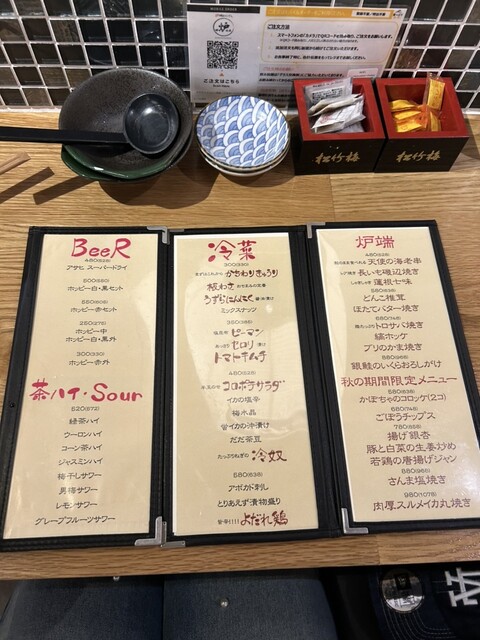 MOBILE ORDER
ご注文はこちら
ご注文方法
松竹梅
松竹梅
BeeR
480(528)
アサヒ スーパードライ
500(550)
ホッピー白・黒セット
550(605)
ホッピー赤セット
250(275)
ホッピー中
ホッピー白・黒外
300(330)
ホッピー赤外
茶ハイ・Sour
520(572)
緑茶ハイ
ウーロンハイ
コーン茶ハイ
ジャスミンハイ
梅干しサワー
男梅サワー
レモンサワー
グレープフルーツサワー
冷菜
300(330)
まずはこれから かちわりきゅうり
板わさ
うずらにんにく 醤油漬け
ミックスナッツ
350(385)
塩昆布 ピーマン
セロリ 漬け
トマトキムチ
480(528)
コロポテサラダ
イカの塩辛
梅水晶
旨イカの沖漬け
だだ茶豆
たっぷりねぎの 冷奴
580(638)
アボカド刺し
とりあえず漬物盛り
旨辛(!!) よだれ鶏
炉端
480(528)
天使の海老串
長いも磯辺焼き
蓮根七味
580(638)
どんこ椎茸
ほたてバター焼き
トロサバ焼き
縞ホッケ
ブリのかま焼き
880(968)
銀鮭のいくらおろしがけ
秋の期間限定メニュー
580(638)
かぼちゃのコロッケ(2コ)
680(748)
ごぼうチップス
780(858)
揚げ銀杏
豚と白菜の生姜炒め
若鶏の唐揚げジャン
880(968)
さんま塩焼き
980(1078)
肉厚スルメイカ丸焼き